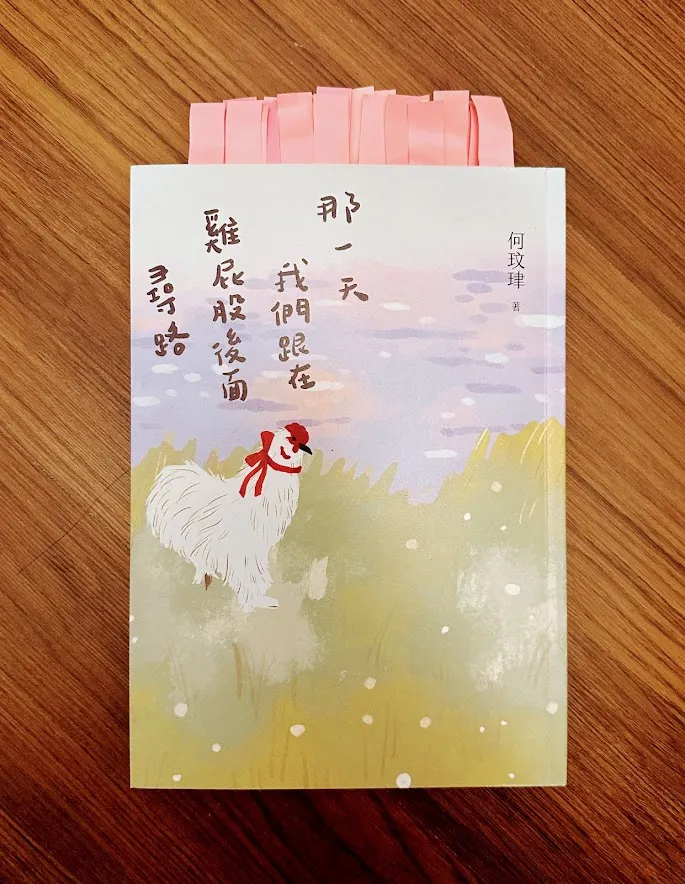 那一天
我們跟在
雞屁股後面
尋路
何玟珒
著